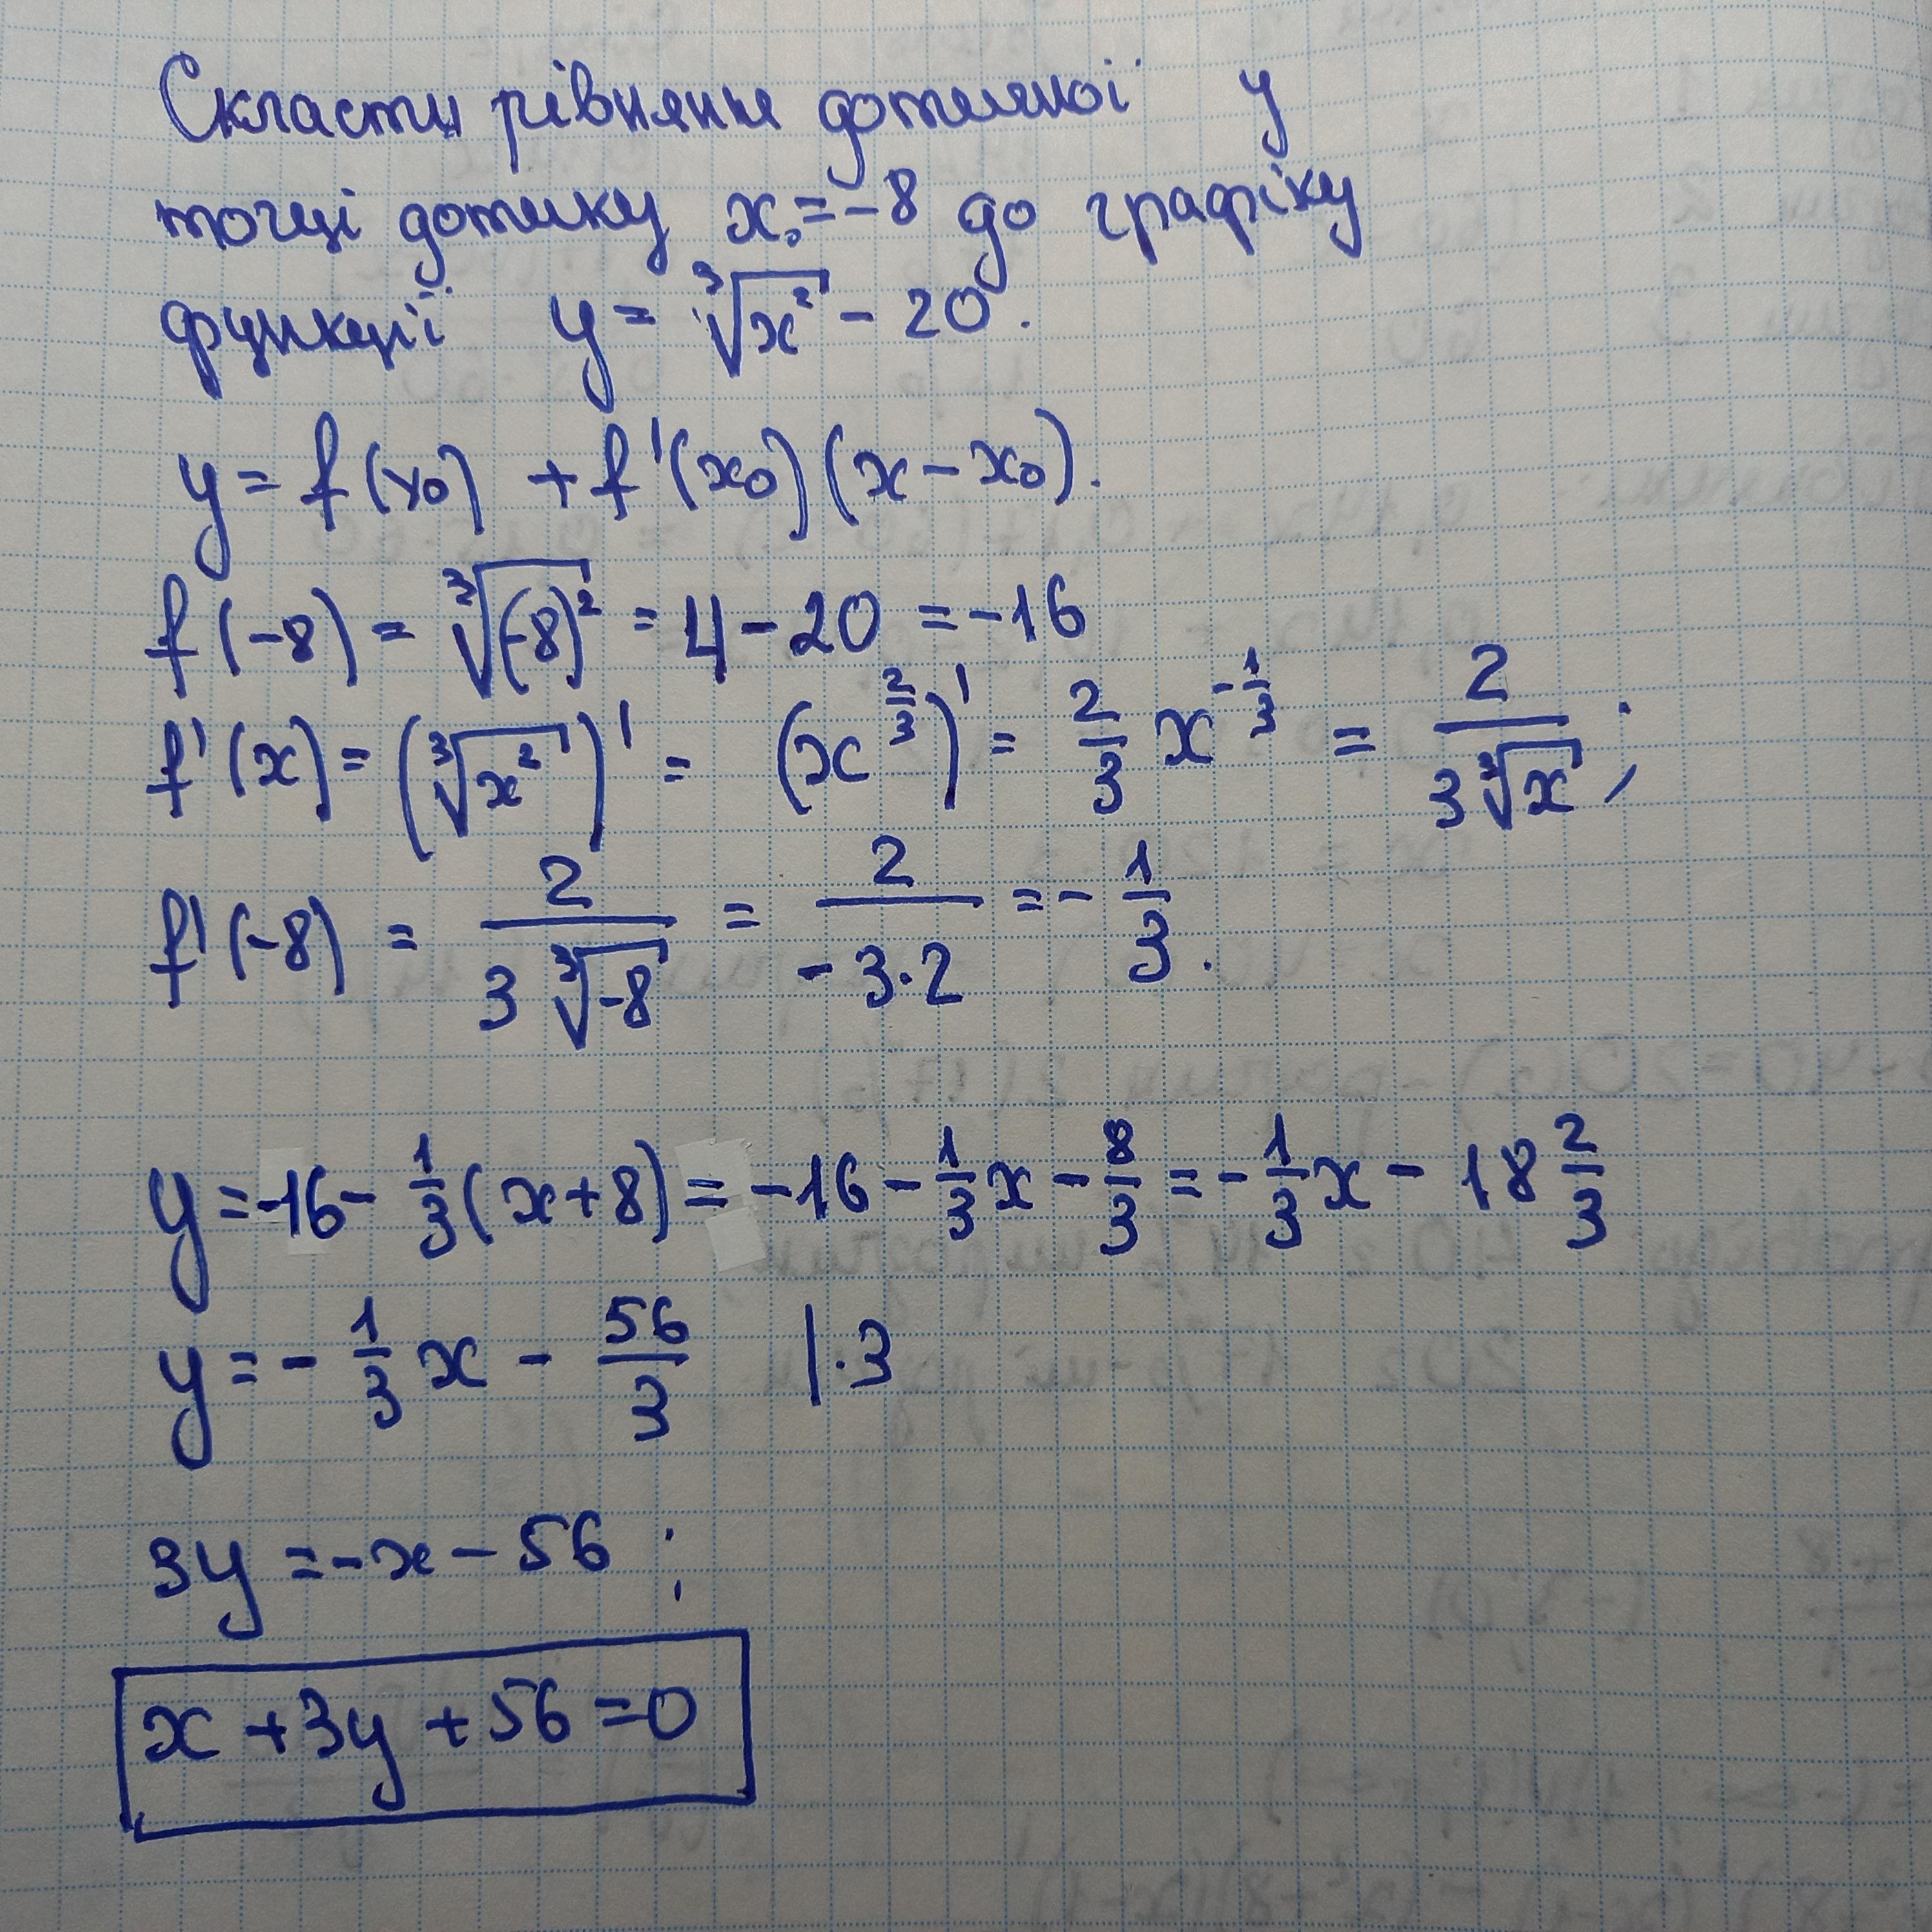 Скласти рівняння дотичної у
точці дотику x₀=-8 до графіку
функції y = ∛(x²) - 20.
y = f(x₀) + f'(x₀)(x - x₀).
f(-8) = ∛((-8)²) = 4 - 20 = -16
f'(x) = (∛(x²))' = (x^(2/3))' = 2/3 x^(-1/3) = 2/(3∛x);
f'(-8) = 2/(3∛(-8)) = 2/(-3·2) = -1/3.
y = -16 - 1/3(x+8) = -16 - 1/3x - 8/3 = -1/3x - 18 2/3
y = -1/3x - 56/3 |·3
3y = -x - 56;
x + 3y + 56 = 0